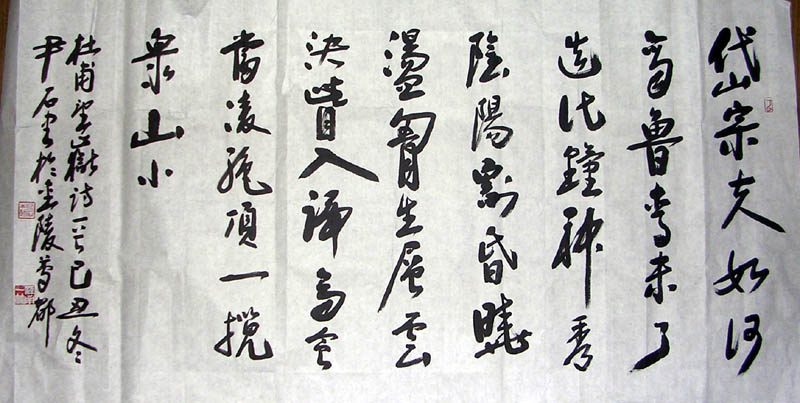 岱宗夫如何
齊魯青未了
造化鍾神秀
陰陽割昏曉
盪胷生層雲
決眥入歸鳥會
當凌絕頂一攬
衆山小
杜甫望嶽詩一首己丑冬
尹石書於金陵